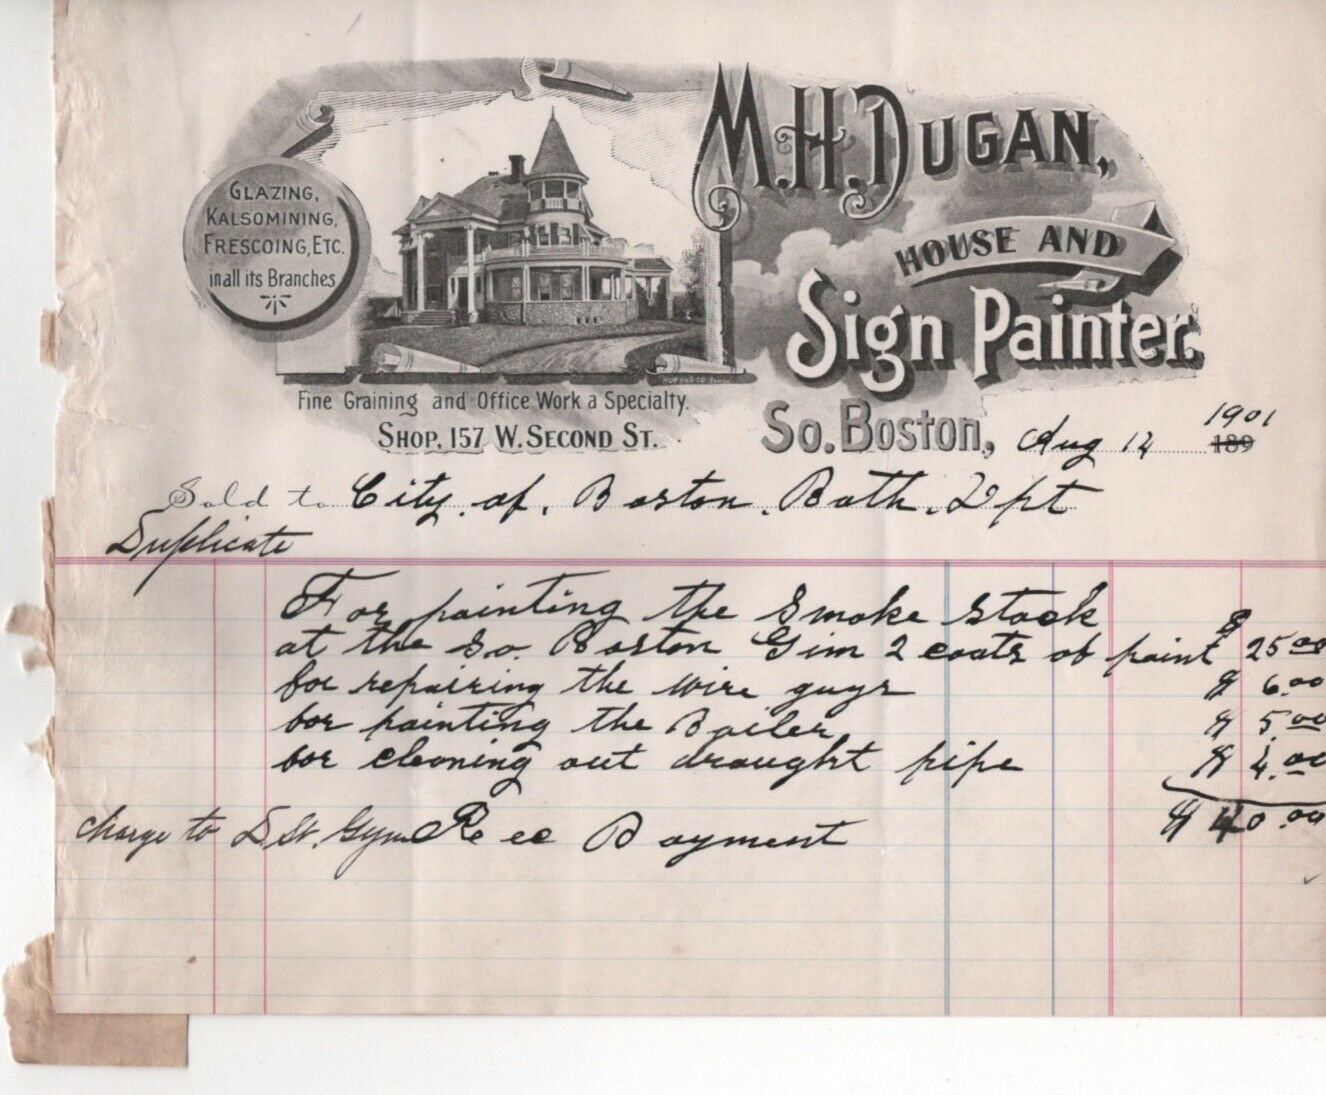 M.H. DUGAN,
HOUSE AND
Sign Painter.
GLAZING,
KALSOMINING,
FRESCOING, ETC.
in all its Branches
Fine Graining and Office Work a Specialty.
SHOP, 157 W. SECOND ST.
So. Boston, Aug 12 189 1901
Sold to City of Boston Bath Dpt
Duplicate
For painting the Smoke Stack
at the So. Boston Gim 2 coats of paint $ 25.00
for repairing the wire guys $ 6.00
for painting the Boiler $ 5.00
for cleaning out draught pipe $ 4.00
$ 40.00
charge to D St. Gym Rec Bayment